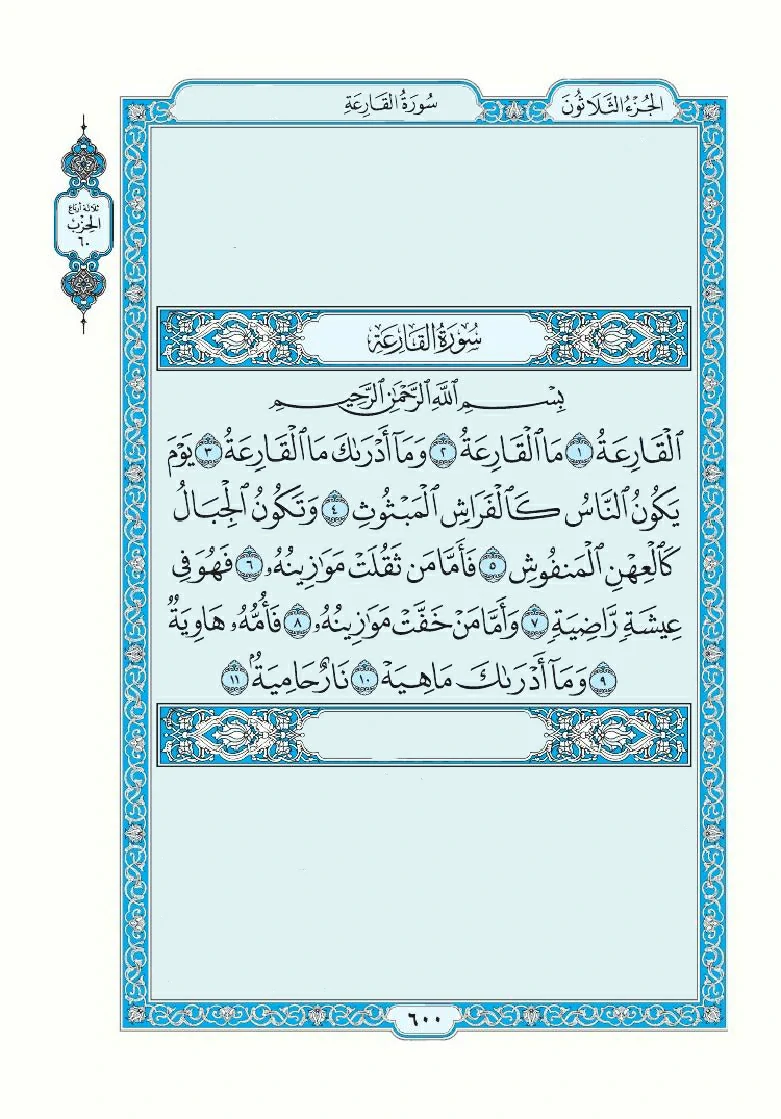 الجُزْءُ الثَّلَاثُونَ
سُورَةُ القَارِعَةِ
ثلاثة أرباع
الحِزْب
٦٠
سُورَةُ القَارِعَة
بِسْمِ ٱللَّهِ ٱلرَّحْمَٰنِ ٱلرَّحِيمِ
ٱلْقَارِعَةُ ١ مَا ٱلْقَارِعَةُ ٢ وَمَآ أَدْرَىٰكَ مَا ٱلْقَارِعَةُ ٣ يَوْمَ
يَكُونُ ٱلنَّاسُ كَٱلْفَرَاشِ ٱلْمَبْثُوثِ ٤ وَتَكُونُ ٱلْجِبَالُ
كَٱلْعِهْنِ ٱلْمَنفُوشِ ٥ فَأَمَّا مَن ثَقُلَتْ مَوَٰزِينُهُۥ ٦ فَهُوَ فِى
عِيشَةٍ رَّاضِيَةٍ ٧ وَأَمَّا مَنْ خَفَّتْ مَوَٰزِينُهُۥ ٨ فَأُمُّهُۥ هَاوِيَةٌ
٩ وَمَآ أَدْرَىٰكَ مَا هِيَهْ ١٠ نَارٌ حَامِيَةٌۢ ١١
٦٠٠